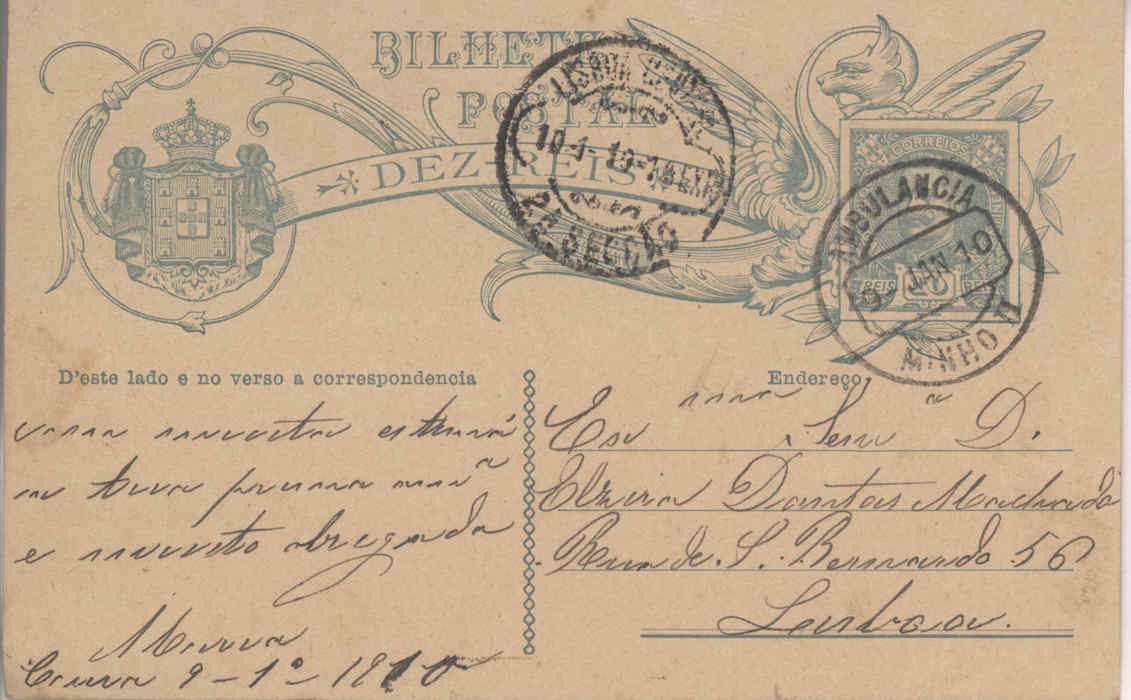 BILHETE
POSTAL
DEZ REIS
LISBOA CENTRAL
10-1-10-
2ª SECÇÃO
CORREIOS
REIS 10 REIS
AMBULANCIA
9 JAN 10
MINHO II
D'este lado e no verso a correspondencia
muito
tua prima
e muito obrigada
Maria
9-1º-1910
Endereço
Exma Senra D.
Elzira Dantas Machado
Rua de S. Bernardo 56
Lisboa.